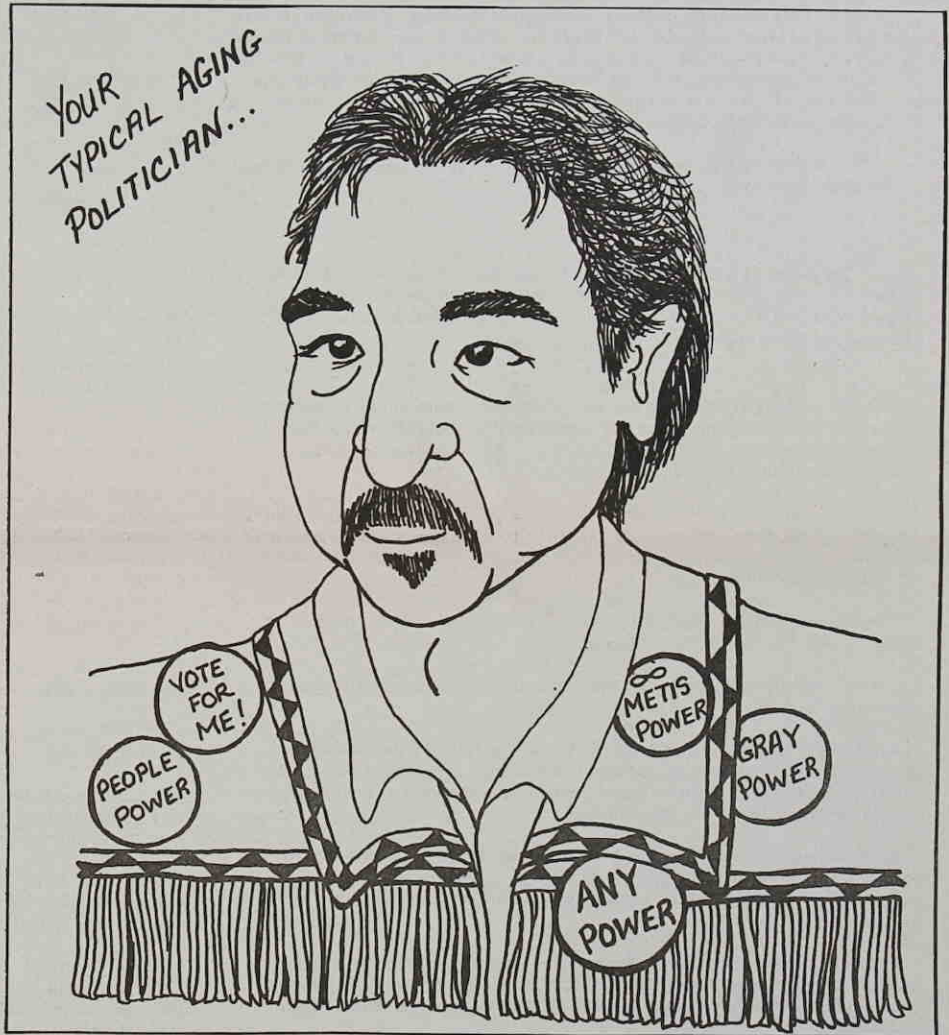 YOUR
TYPICAL AGING
POLITICIAN...
VOTE
FOR
ME!
PEOPLE
POWER
∞
METIS
POWER
GRAY
POWER
ANY
POWER